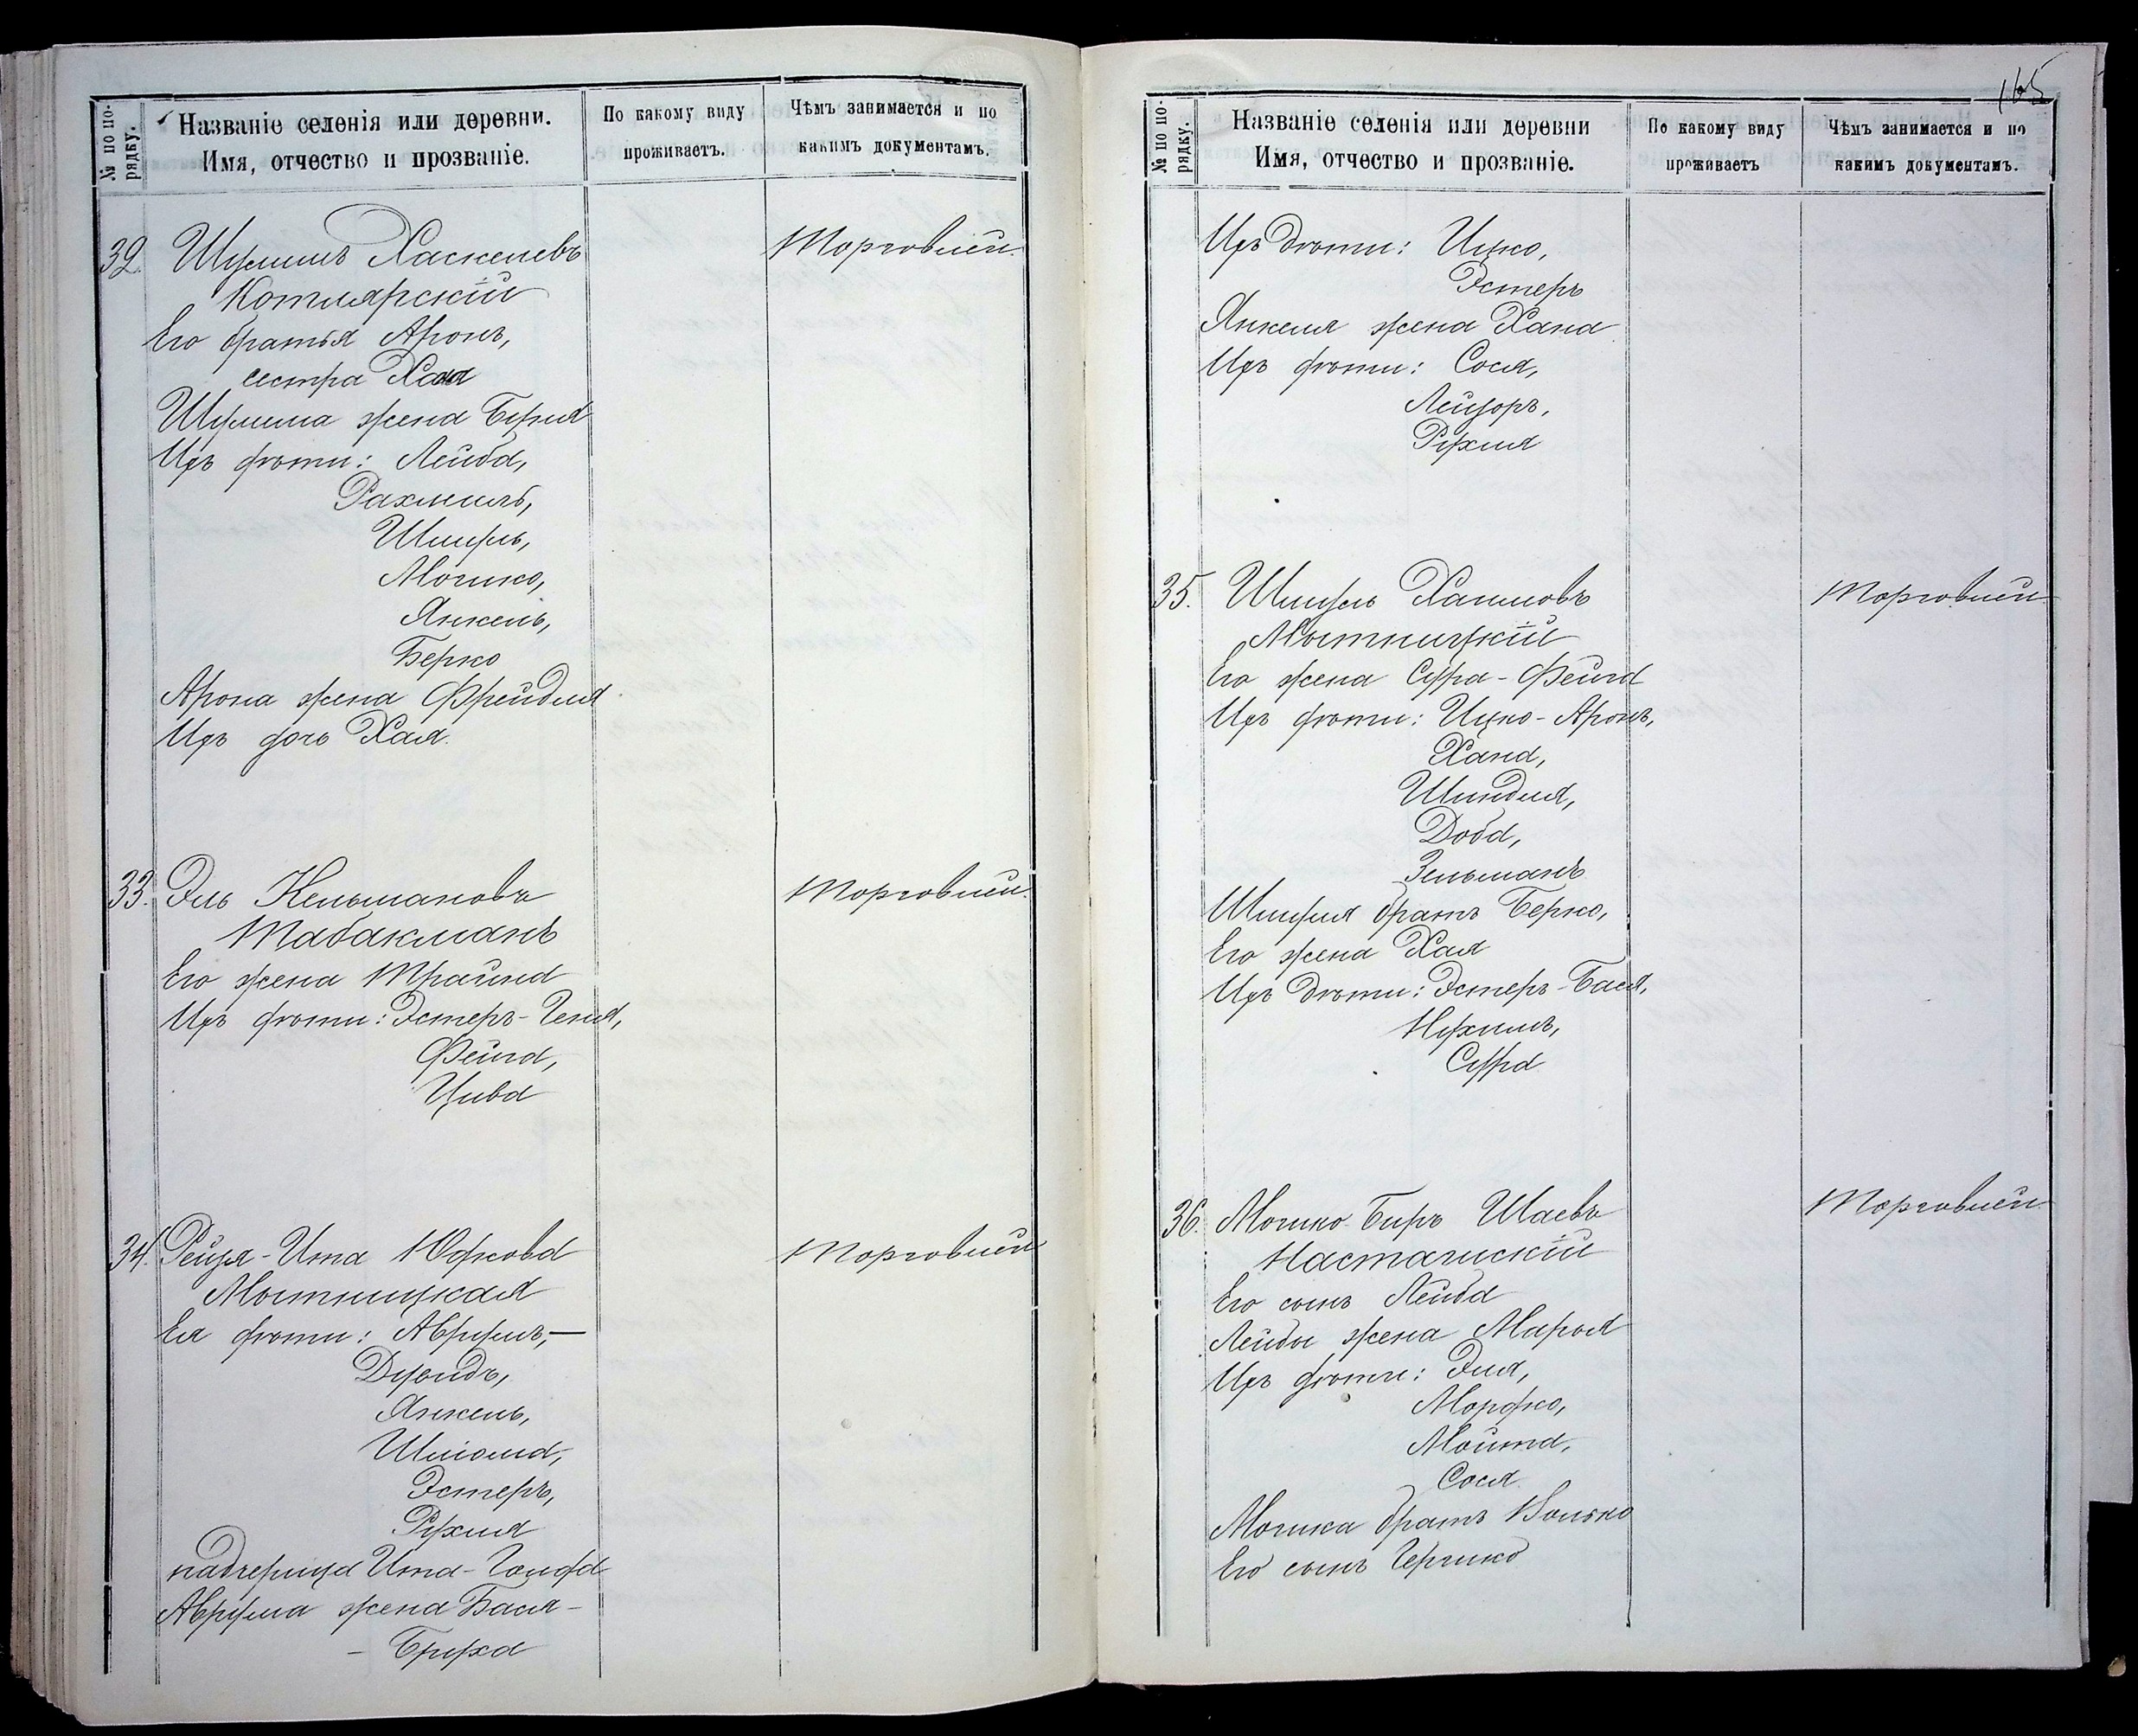 № по по-
рядку.
Названіе селенія или деревни.
Имя, отчество и прозваніе.
По какому виду
проживаетъ.
Чѣмъ занимается и по
какимъ документамъ.
32. Шулимъ Хаскелевъ Торговлей.
Котлярскій
Его братья Аронъ,
сестра Хая
Шулима жена Бруха
Ихъ дѣти: Лейба,
Рахмиль,
Шмуль,
Мошко,
Янкель,
Берко
Арона жена Фрейдля
Ихъ дочь Хая.
33. Эль Кельмановъ Торговлей.
Табакманъ
Его жена Трайна
Ихъ дѣти: Эстеръ-Геня,
Фейга,
Цива
34. Рейзя-Ита Юдкова Торговлей
Мытницкая
Ея дѣти: Аврумъ,—
Дувидъ,
Янкель,
Шліома,
Эстеръ,
Рухля
падчерица Ита-Голда
Аврума жена Бася-
- Бруха
165
№ по по-
рядку.
Названіе селенія или деревни
Имя, отчество и прозваніе.
По какому виду
проживаетъ
Чѣмъ занимается и по
какимъ документамъ.
Ихъ дѣти: Ицко,
Эстеръ
Янкеля жена Хана
Ихъ дѣти: Сося,
Лейзоръ,
Рухля
35. Шмуль Хаимовъ Торговлей
Мытницкій
Его жена Сура-Фейга
Ихъ дѣти: Ицко-Аронъ,
Хана,
Шиндля,
Доба,
Зельманъ
Шмуля братъ Берко,
Его жена Хая
Ихъ дѣти: Эстеръ-Бася,
Нухимъ,
Сура
36. Мошко-Беръ Шаевъ Торговлей
Насташскій
Его сынъ Лейба
Лейбы жена Марья
Ихъ дѣти: Эля,
Мордко,
Мойта,
Сося
Мошка братъ Волько
Его сынъ Гершко